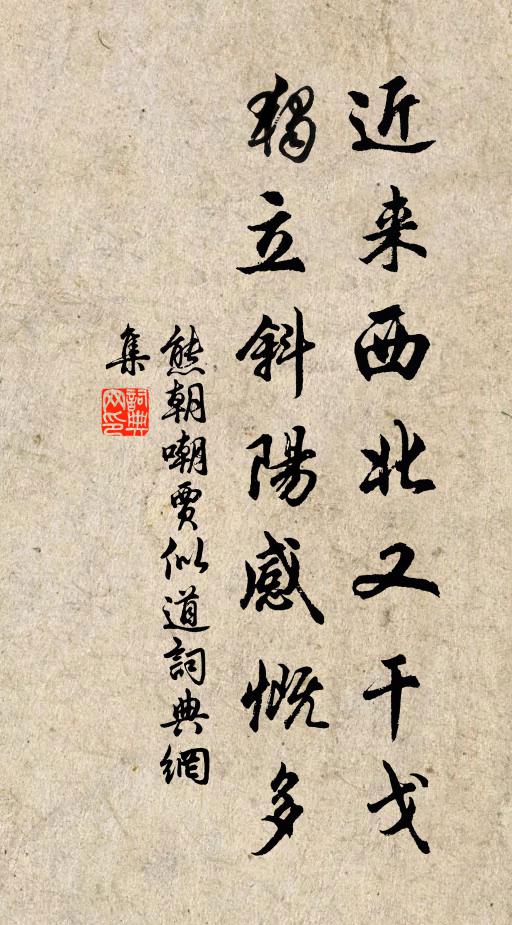 近来西北又干戈
獨立斜陽感慨多
熊朝嘲賈似道詞典網
集
詞典網印